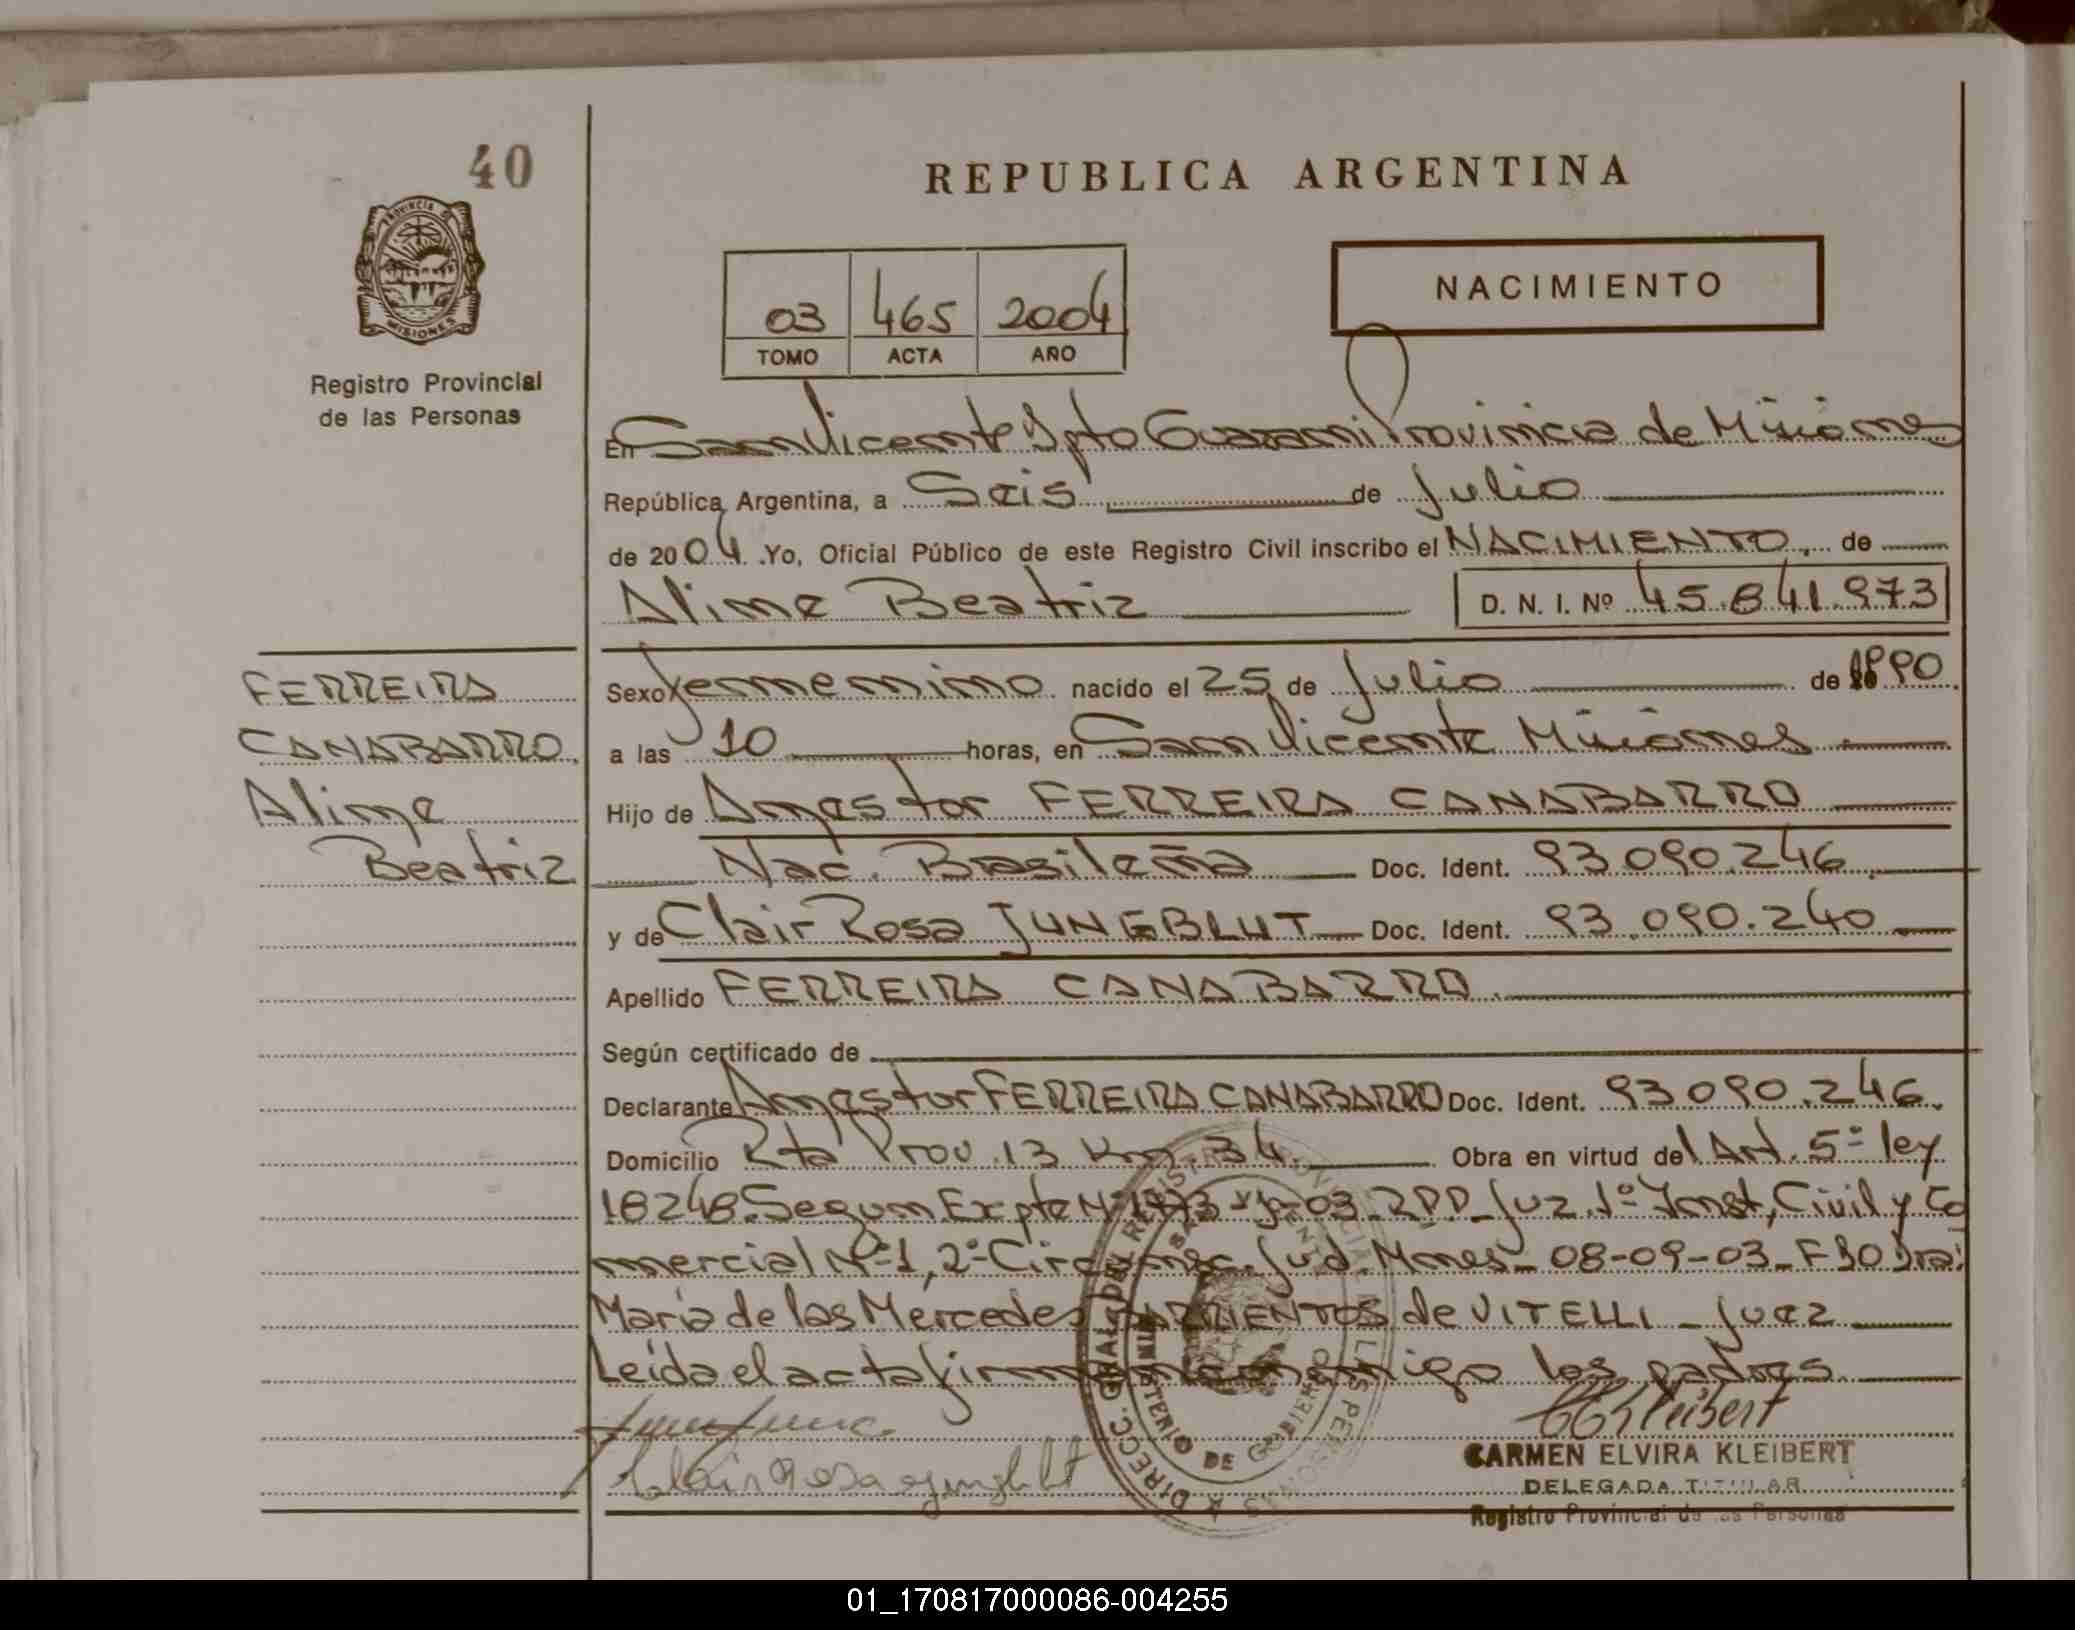 40
REPUBLICA ARGENTINA
PROVINCIA DE
MISIONES
Registro Provincial
de las Personas
03 465 2004
TOMO ACTA AÑO
NACIMIENTO
En San Vicente Dpto Guarani Provincia de Misiones
República Argentina, a Seis de Julio
de 2004. Yo, Oficial Público de este Registro Civil inscribo el NACIMIENTO, de
Aline Beatriz D. N. I. Nº 45.841.973
FERREIRA
CANABARRO
Aline
Beatriz
Sexo femenino nacido el 25 de Julio de 1990
a las 10 horas, en San Vicente Misiones
Hijo de Amastor FERREIRA CANABARRO
Nac. Brasileña Doc. Ident. 93.090.246
y de Clair Rosa JUNGBLUT Doc. Ident. 93.090.240
Apellido FERREIRA CANABARRO
Según certificado de
Declarante Amastor FERREIRA CANABARRO Doc. Ident. 93.090.246.
Domicilio Rta Prov. 13 Km. 34. Obra en virtud del Art. 5º ley
18248. Segun Expte Nº -03 Juz. 1º Inst, Civil y Co
mercial Nº 1, 2º Circ Jud. Mnes - 08-09-03 - Dra:
María de las Mercedes BARRIENTOS de VITELLI - Juez
Leída el acta firman conmigo los padres
Clair Rosa Jungblut
CARMEN ELVIRA KLEIBERT
DELEGADA TITULAR
Registro Provincial de las Personas
DIRECC. GRAL. DEL REGISTRO PROVINCIAL DE LAS PERSONAS
MINISTERIO DE GOBIERNO
01_170817000086-004255